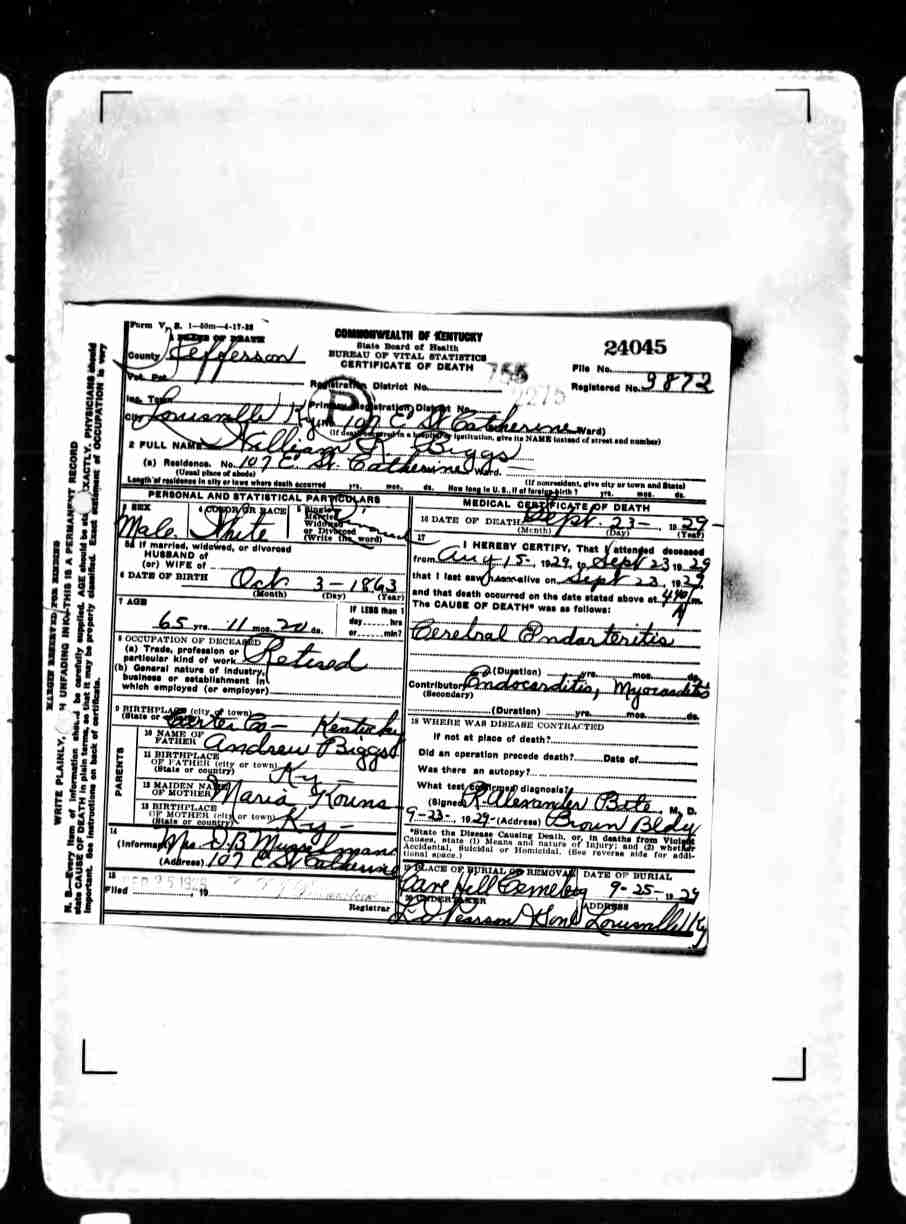 Form V. S. 1—50m—4-17-28
COMMONWEALTH OF KENTUCKY
State Board of Health
BUREAU OF VITAL STATISTICS
CERTIFICATE OF DEATH
24045
1 PLACE OF DEATH
County Jefferson
File No.
Registered No. 9872
Vot. Pct.
Registration District No. 755
Inc. Town
Primary Registration District No. 2275
City Louisville Ky (No. 107 E St Catherine Ward)
(If death occurred in a hospital or institution, give its NAME instead of street and number)
2 FULL NAME William R. Biggs
(a) Residence. No. 107 E. St. Catherine Ward.
(Usual place of abode) (If nonresident, give city or town and State)
Length of residence in city or town where death occurred yrs. mos. ds. How long in U. S., if of foreign birth? yrs. mos. ds.
PERSONAL AND STATISTICAL PARTICULARS
3 SEX
Male
4 COLOR OR RACE
White
5 Single
Married
Widowed
or Divorced
(Write the word)
5a If married, widowed, or divorced
HUSBAND of
(or) WIFE of
6 DATE OF BIRTH Oct 3 - 1863
(Month) (Day) (Year)
7 AGE
65 yrs. 11 mos. 20 ds.
If LESS than 1
day hrs
or min?
8 OCCUPATION OF DECEASED
(a) Trade, profession or
particular kind of work Retired
(b) General nature of industry,
business or establishment in
which employed (or employer)
9 BIRTHPLACE (city or town)
(State or country) Carter Co - Kentucky
PARENTS
10 NAME OF
FATHER Andrew Biggs
11 BIRTHPLACE
OF FATHER (city or town)
(State or country) Ky -
12 MAIDEN NAME
OF MOTHER Maria Kouns
13 BIRTHPLACE
OF MOTHER (city or town)
(State or country) Ky -
14
(Informant) Mrs D. B Musselman
(Address) 107 E St Catherine
15
Filed SEP 25 1929, 19
Registrar
MEDICAL CERTIFICATE OF DEATH
16 DATE OF DEATH Sept. 23 - 1929 -
(Month) (Day) (Year)
17
I HEREBY CERTIFY, That I attended deceased
from Aug 15 -, 1929, to Sept 23 1929
that I last saw him alive on Sept 23, 1929,
and that death occurred on the date stated above at 440 A m.
The CAUSE OF DEATH* was as follows:
Cerebral Endarteritis
(Duration) yrs. mos. ds.
Contributory Endocarditis, Myocarditis
(Secondary)
(Duration) yrs. mos. ds.
18 WHERE WAS DISEASE CONTRACTED
If not at place of death?
Did an operation precede death? Date of
Was there an autopsy?
What test confirmed diagnosis?
(Signed) R. Alexander Bate, M. D.
9-23-, 1929 - (Address) Brown Bldg
*State the Disease Causing Death, or, in deaths from Violent
Causes, state (1) Means and nature of Injury; and (2) whether
Accidental, Suicidal or Homicidal. (See reverse side for addi-
tional space.)
19 PLACE OF BURIAL OR REMOVAL DATE OF BURIAL
Cave Hill Cemetery 9-25-, 1929
20 UNDERTAKER ADDRESS
L. D. Pearson & Son Louisville Ky
MARGIN RESERVED FOR BINDING
WRITE PLAINLY, WITH UNFADING INK—THIS IS A PERMANENT RECORD
N. B.—Every item of information should be carefully supplied. AGE should be stated EXACTLY. PHYSICIANS should
state CAUSE OF DEATH in plain terms, so that it may be properly classified. Exact statement of OCCUPATION is very
important. See instructions on back of certificate.